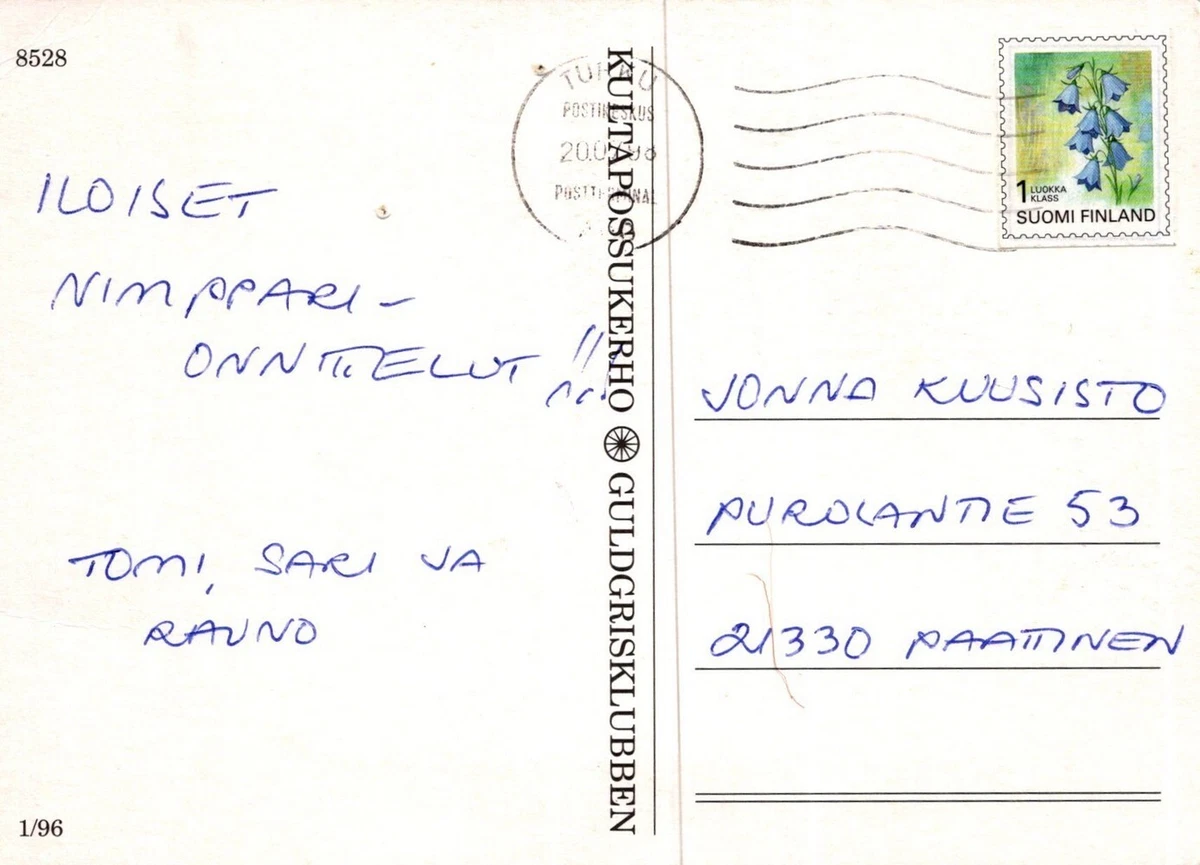 8528
ILOISET
NIMPPARI-
ONNITTELUT!!!
TOMI, SARI JA
RAUNO
1/96
KULTAPOSSUKERHO GULDGRISKLUBBEN
TURKU
POSTIKESKUS
POSTTERMINAL
1 LUOKKA
KLASS
SUOMI FINLAND
JONNA KUUSISTO
PUROLANTIE 53
21330 PAATTINEN